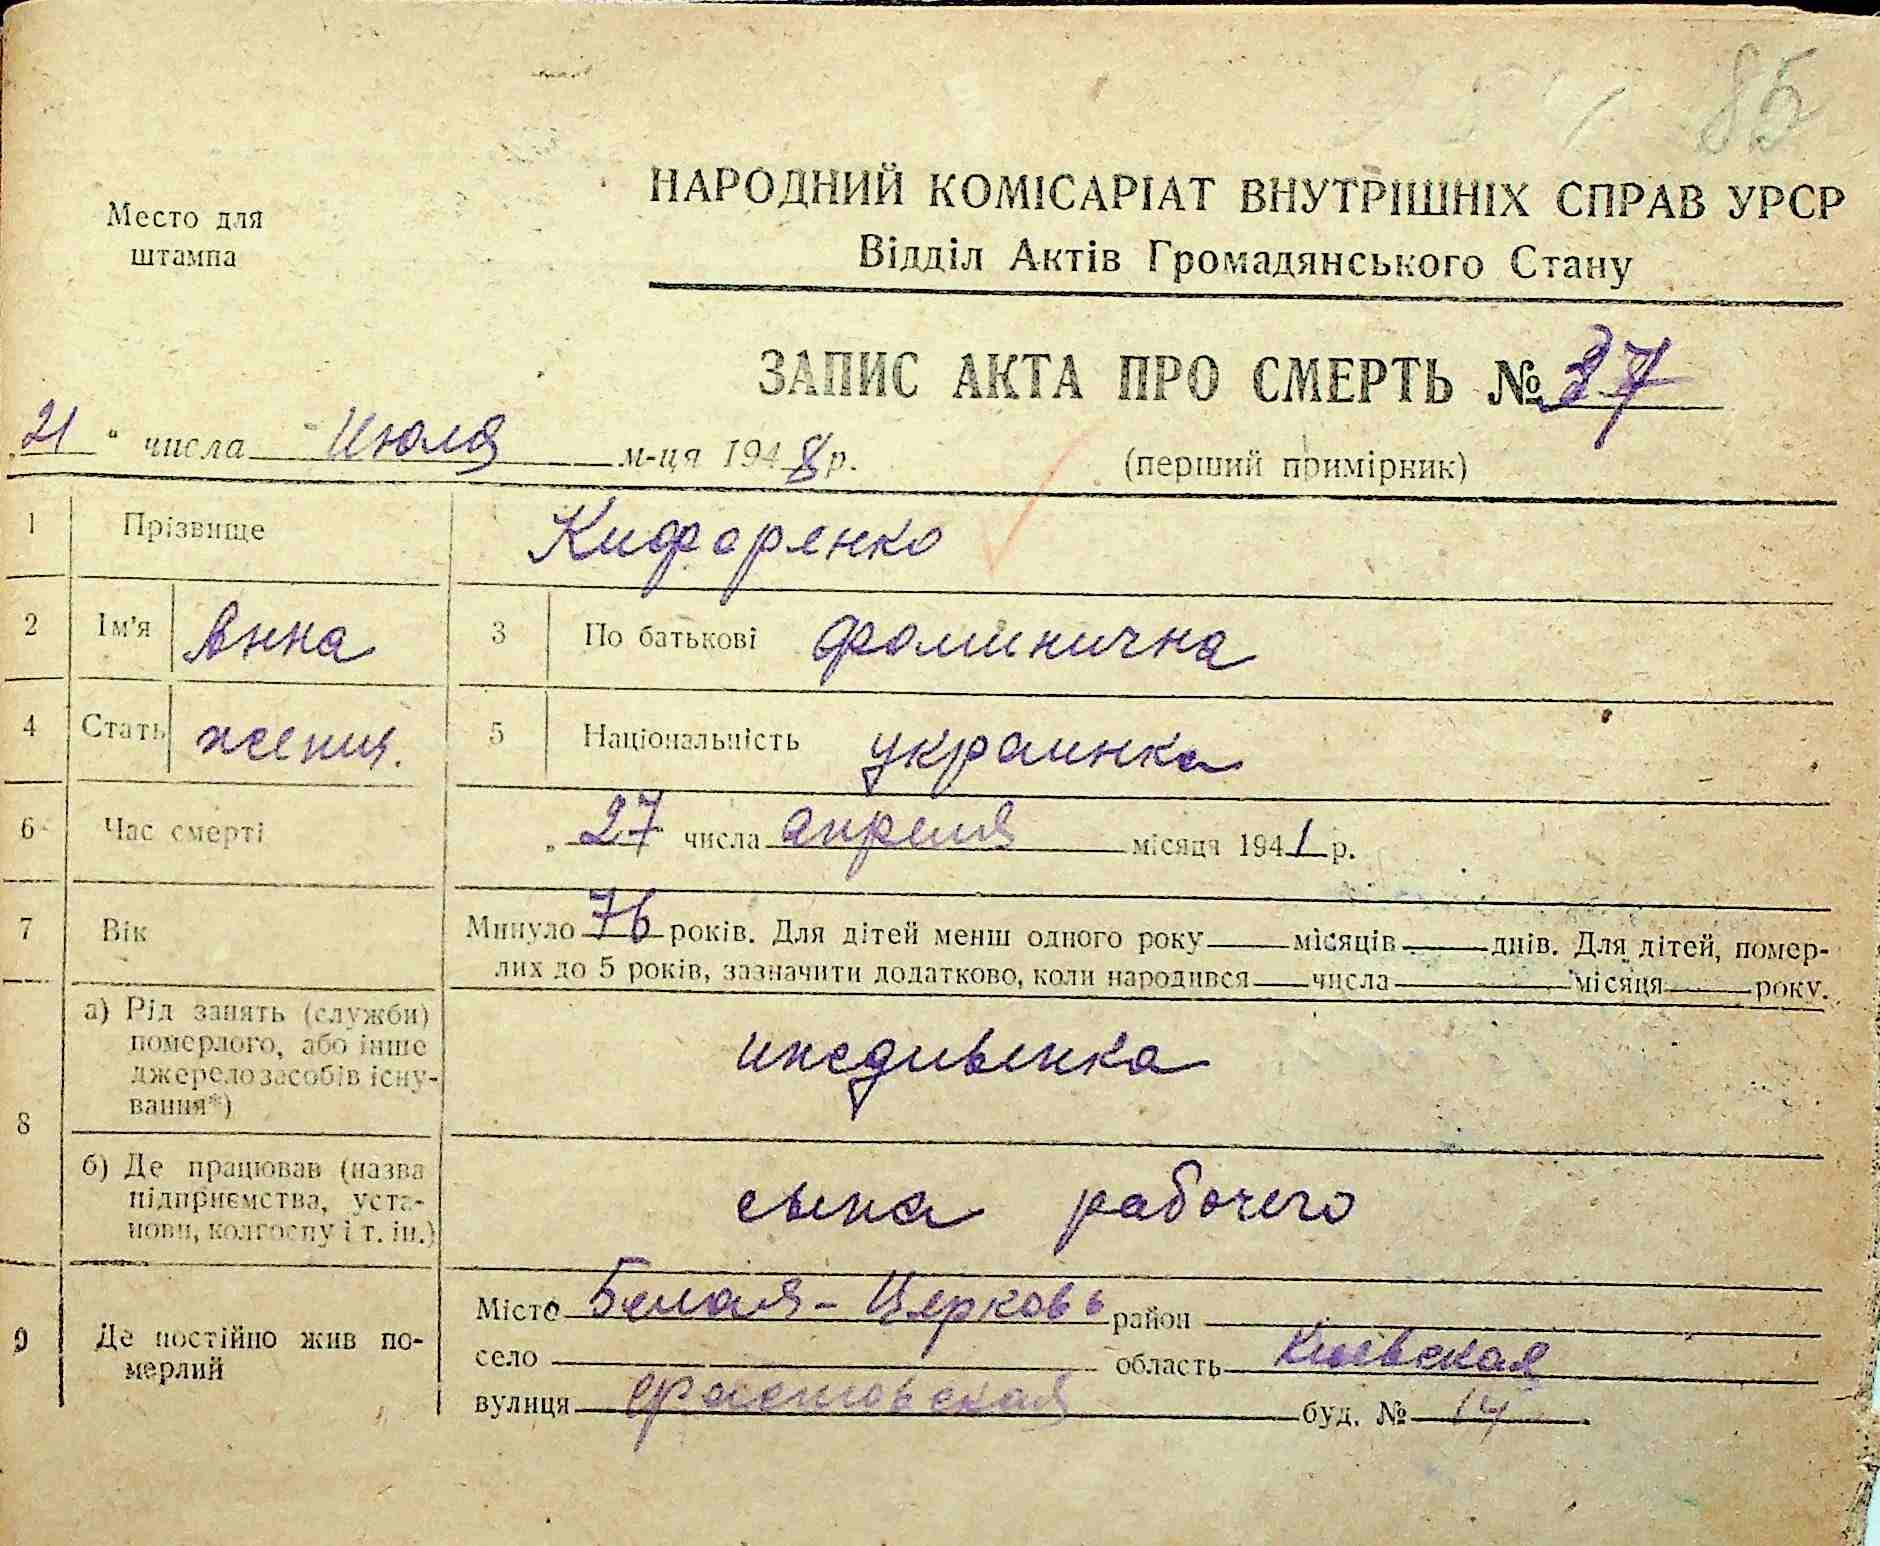 85
Место для
штампа
НАРОДНИЙ КОМІСАРІАТ ВНУТРІШНІХ СПРАВ УРСР
Відділ Актів Громадянського Стану
ЗАПИС АКТА ПРО СМЕРТЬ № 37
„21“ числа Июля м-ця 1948 р.
(перший примірник)
1 Прізвище Кифоренко
2 Ім'я Анна 3 По батькові Фоминична
4 Стать женщ. 5 Національність украинка
6 Час смерті „27 числа апреля місяця 1941 р.
7 Вік Минуло 76 років. Для дітей менш одного року місяців днів. Для дітей, помер-
лих до 5 років, зазначити додатково, коли народився числа місяця року.
8 а) Рід занять (служби)
померлого, або інше
джерело засобів існу-
вання*)
иждивенка
б) Де працював (назва
підприємства, уста-
нови, колгоспу і т. ін.)
сына рабочего
9 Де постійно жив по-
мерлий
Місто Белая-Церковь район
село область Киевская
вулиця Фастовская буд. № 14